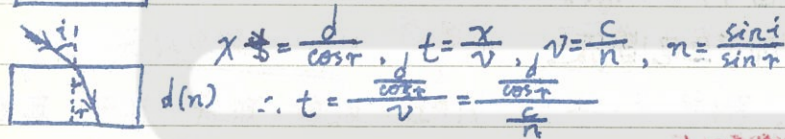 i x = d/cosr , t = x/v , v = c/n , n = sin i/sin r
r d(n) ∴ t = (d/cosr)/v = (d/cosr)/(c/n)